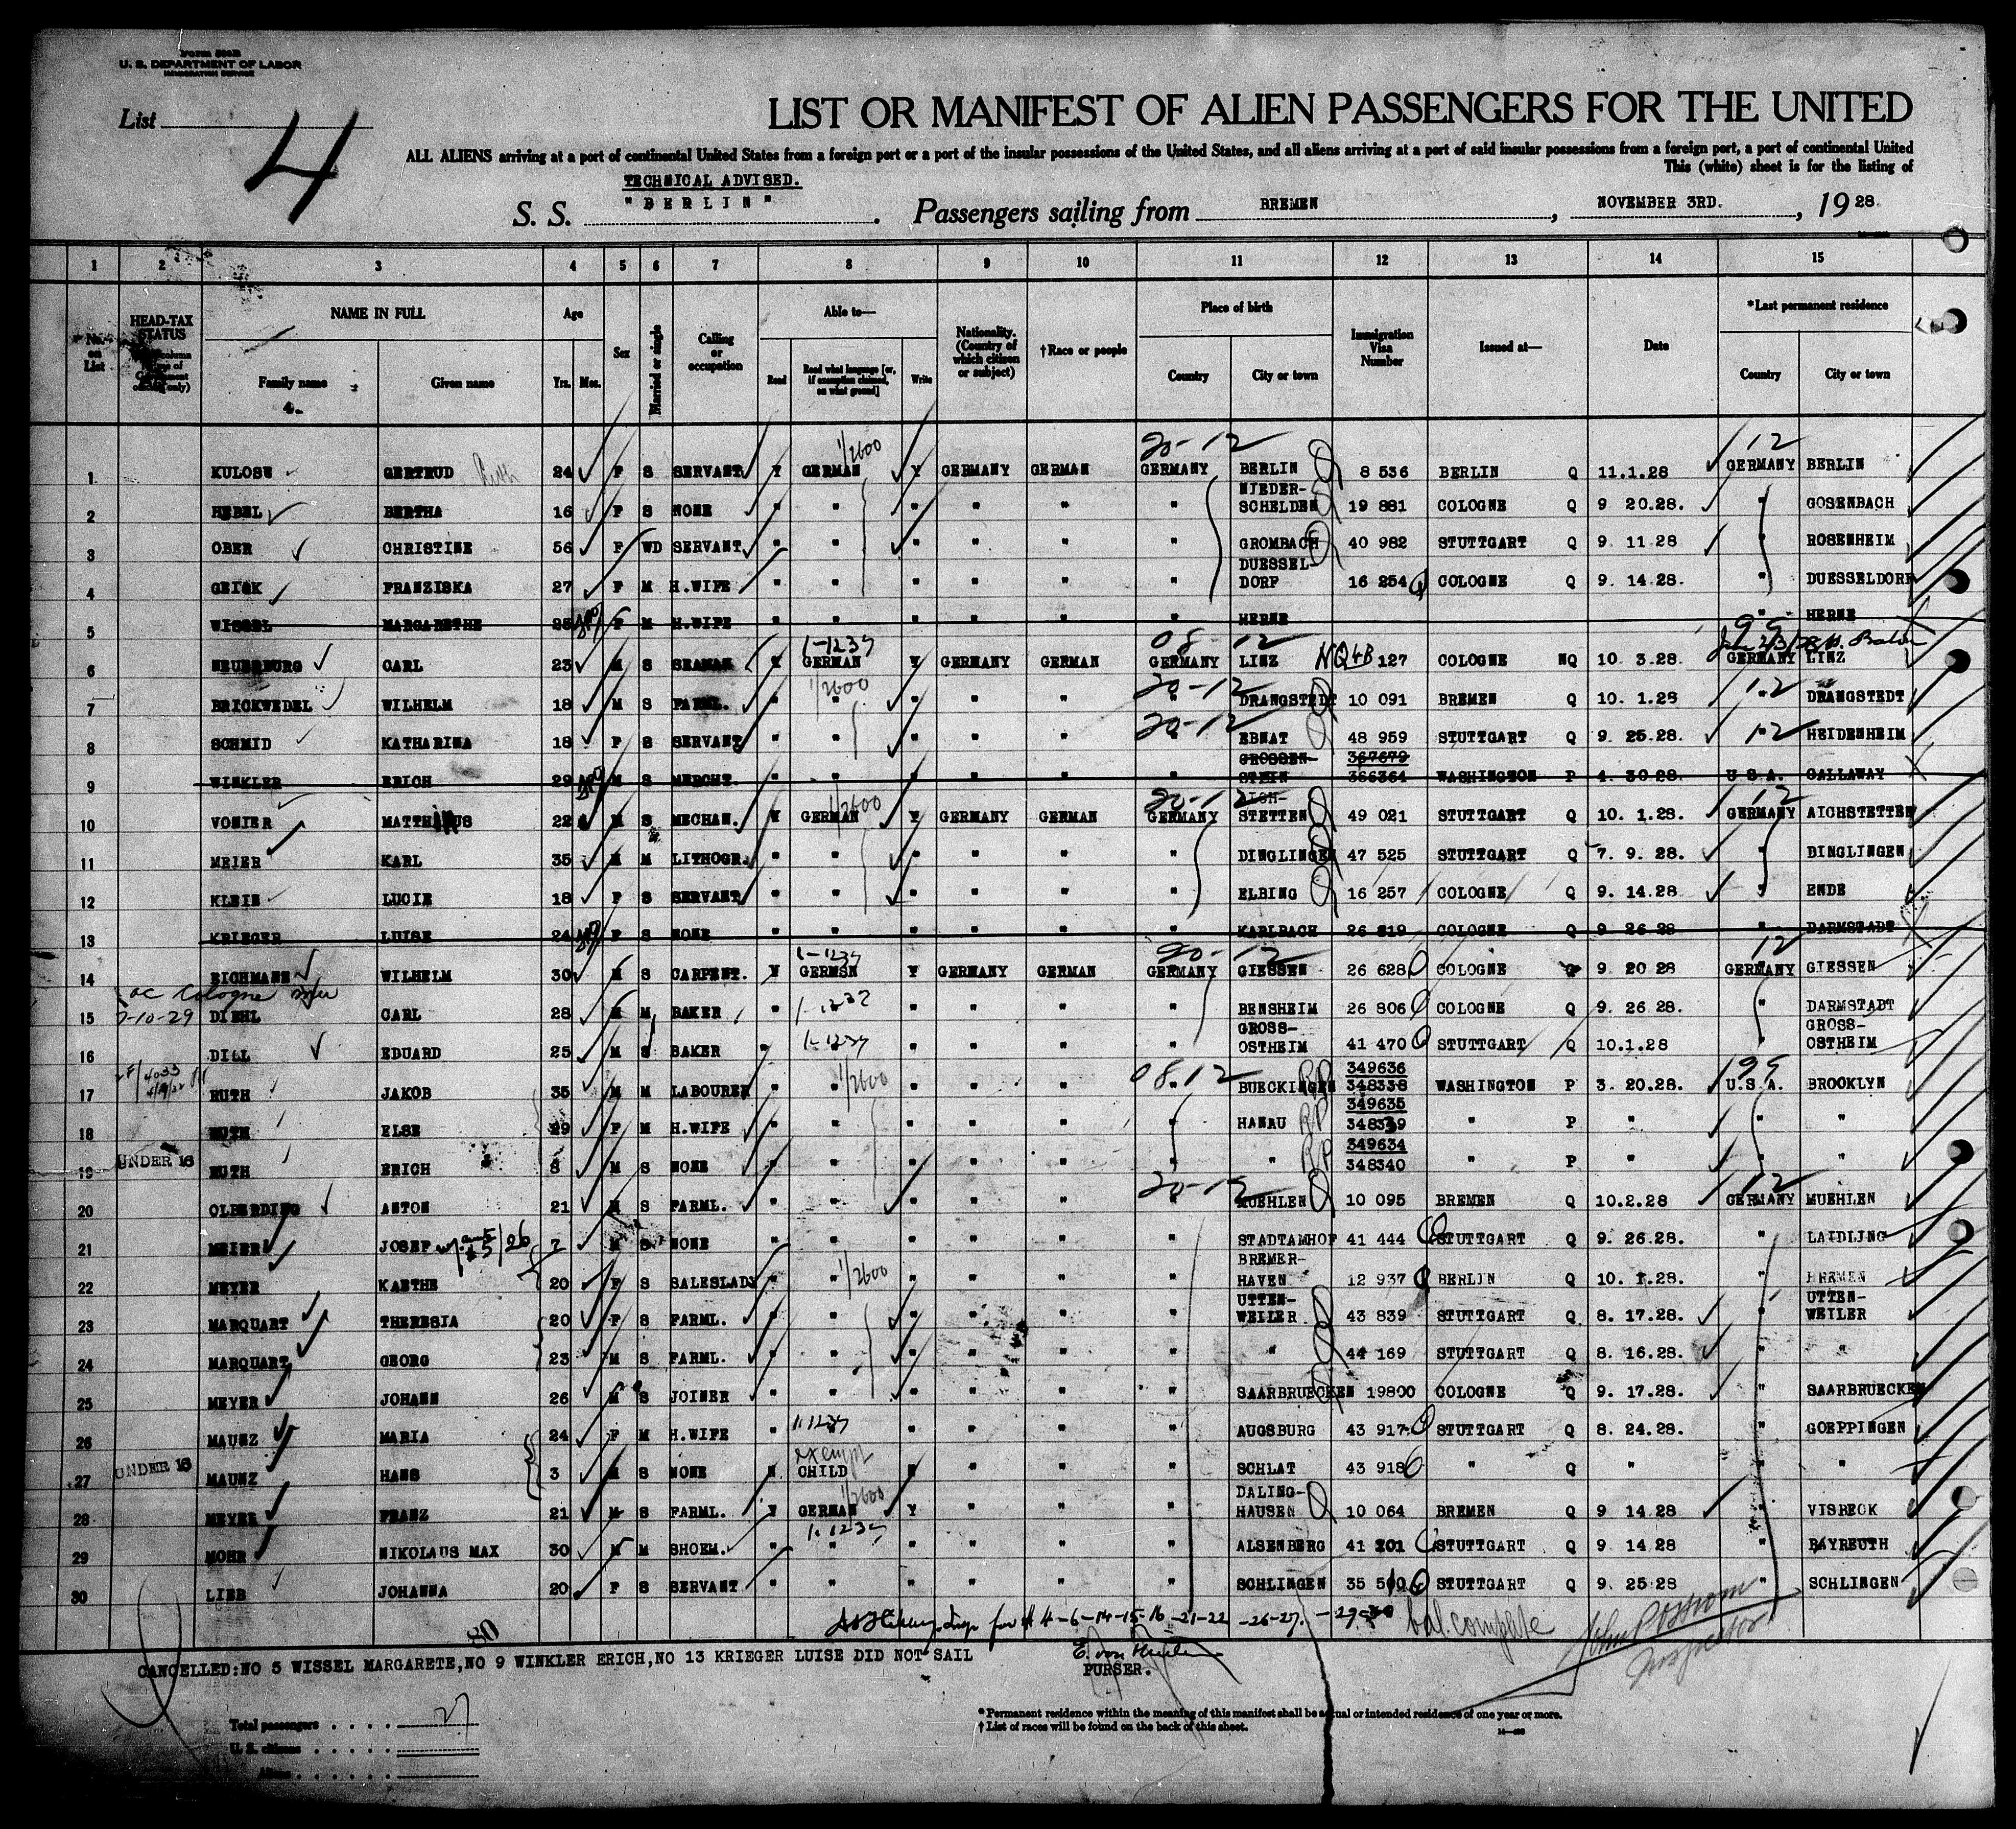 Form 500B
U. S. DEPARTMENT OF LABOR
IMMIGRATION SERVICE
List 4
LIST OR MANIFEST OF ALIEN PASSENGERS FOR THE UNITED
ALL ALIENS arriving at a port of continental United States from a foreign port or a port of the insular possessions of the United States, and all aliens arriving at a port of said insular possessions from a foreign port, a port of continental United
This (white) sheet is for the listing of
TECHNICAL ADVISED.
S. S. "BERLIN". Passengers sailing from BREMEN, NOVEMBER 3RD., 1928.
1 2 3 4 5 6 7 8 9 10 11 12 13 14 15
No. on List
HEAD-TAX STATUS
NAME IN FULL Family name Given name
Age Yrs. Mos.
Sex
Married or single
Calling or occupation
Able to— Read Read what language [or, if exemption claimed, on what ground] Write
Nationality. (Country of which citizen or subject)
†Race or people
Place of birth Country City or town
Immigration Visa Number
Issued at—
Date
*Last permanent residence Country City or town
1/2600 20-12 12
1 KULOSW GERTRUD Ruth 24 F S SERVANT Y GERMAN Y GERMANY GERMAN GERMANY BERLIN 8 536 BERLIN Q 11.1.28 GERMANY BERLIN
2 HEBEL BERTHA 16 F S NONE " " " " " " NIEDER-SCHELDEN 19 881 COLOGNE Q 9 20.28. " GOSENBACH
3 OBER CHRISTINE 56 F WD SERVANT " " " " " " GROMBACH 40 982 STUTTGART Q 9. 11.28 " ROSENHEIM
4 GEICK FRANZISKA 27 F M H.WIFE " " " " " " DUESSEL-DORF 16 254 COLOGNE Q 9. 14.28. " DUESSELDORF
5 WISSEL MARGARETHE 25 F M H.WIFE " " " " " " HERNE " HERNE
1-1237 08-12 99
6 NEUERBURG CARL 23 M S SEAMAN Y GERMAN Y GERMANY GERMAN GERMANY LINZ NQ4B 127 COLOGNE NQ 10. 3.28. GERMANY LINZ
1/2600 20-12 12
7 BRICKWEDEL WILHELM 18 M S FARML. " " " " " " DRANGSTEDT 10 091 BREMEN Q 10. 1.28 " DRANGSTEDT
20-12 12
8 SCHMID KATHARINA 18 F S SERVANT " " " " " " EBNAT 48 959 STUTTGART Q 9. 25.28. " HEIDENHEIM
9 WINKLER ERICH 29 M S MERCHT. " " " " " " GROSSEN-STEIN 367679 366364 WASHINGTON P 4. 30 28. U.S.A. CALLAWAY
1/2600 20-12 12
10 VONIER MATTHIAUS 22 M S MECHAN. Y GERMAN Y GERMANY GERMAN GERMANY AICH-STETTEN 49 021 STUTTGART Q 10. 1.28. GERMANY AICHSTETTEN
11 MEIER KARL 35 M M LITHOGR. " " " " " " DINGLINGEN 47 525 STUTTGART Q 7. 9. 28. " DINGLINGEN
12 KLEIN LUCIE 18 F S SERVANT " " " " " " ELBING 16 257 COLOGNE Q 9. 14.28 " ENDE
13 KRIEGER LUISE 24 F S NONE " " " " " " KARLBACH 26 819 COLOGNE Q 9 26 28 " DARMSTADT
1-1237 20-12 12
14 EICHMANN WILHELM 30 M S CARPENT. Y GERMSN Y GERMANY GERMAN GERMANY GIESSEN 26 628 COLOGNE Q 9. 20 28 GERMANY GIESSEN
ac Cologne
15 7-10-29 DIEHL CARL 28 M M BAKER " 1-1237 " " " " BENSHEIM 26 806 COLOGNE Q 9. 26.28. " DARMSTADT
16 DILL EDUARD 25 M S BAKER " 1-1237 " " " " GROSS-OSTHEIM 41 470 STUTTGART Q 10.1.28 " GROSS-OSTHEIM
1/2600 0812 99
17 RUTH JAKOB 35 M M LABOURER " " " " " " BUECKINGEN RP 349636 348338 WASHINGTON P 3. 20.28. U.S.A. BROOKLYN
18 RUTH ELSE 29 F M H.WIFE " " " " " " HANAU RP 349635 348339 " P " " "
19 UNDER 16 RUTH ERICH 8 M S NONE " " " " " " " RP 349634 348340 " P " " "
20-12 12
20 OLBERDING ANTON 21 M S FARML. " " " " " " MUEHLEN 10 095 BREMEN Q 10.2.28 GERMANY MUEHLEN
21 MEIER JOSEF 7 M S NONE " STADTAMHOF 41 444 STUTTGART Q 9. 26.28. " LAIDLING
22 MEYER KAETHE 20 F S SALESLADY " " 1/2600 " " " " BREMER-HAVEN 12 937 BERLIN Q 10. 1.28. " BREMEN
23 MARQUART THERESIA 20 F S FARML. " " " " " " UTTEN-WEILER 43 839 STUTTGART Q 8. 17.28. " UTTEN-WEILER
24 MARQUART GEORG 23 M S FARML. " " " " " " " 44 169 STUTTGART Q 8. 16.28. " "
25 MEYER JOHANN 26 M S JOINER " " " " " " SAARBRUECKEN 19800 COLOGNE Q 9. 17.28. " SAARBRUECKEN
1-1237
26 MAUNZ MARIA 24 F M H.WIFE " " " " " " AUGSBURG 43 917 STUTTGART Q 8. 24.28. " GOEPPINGEN
exempt
27 UNDER 16 MAUNZ HANS 3 M S NONE N CHILD N " " " SCHLAT 43 918 " Q " " "
1/2600
28 MEYER FRANZ 21 M S FARML. Y GERMAN Y " " " DALING-HAUSEN 10 064 BREMEN Q 9 14.28 " VISBECK
1-1237
29 MOHR NIKOLAUS MAX 30 M M SHOEM. " " " " " " ALSENBERG 41 201 STUTTGART Q 9 14 28 " BAYREUTH
30 LIEB JOHANNA 20 F S SERVANT " " " " " " SCHLINGEN 35 500 STUTTGART Q 9. 25.28 " SCHLINGEN
for # 4-6-14-15-16-21-22-26-27-29-30 bal. complete
John P Inspector
CANCELLED:NO 5 WISSEL MARGARETE,NO 9 WINKLER ERICH,NO 13 KRIEGER LUISE DID NOT SAIL
PURSER.
* Permanent residence within the meaning of this manifest shall be actual or intended residence of one year or more.
† List of races will be found on the back of this sheet.
Total passengers 27
U. S. citizens
Aliens